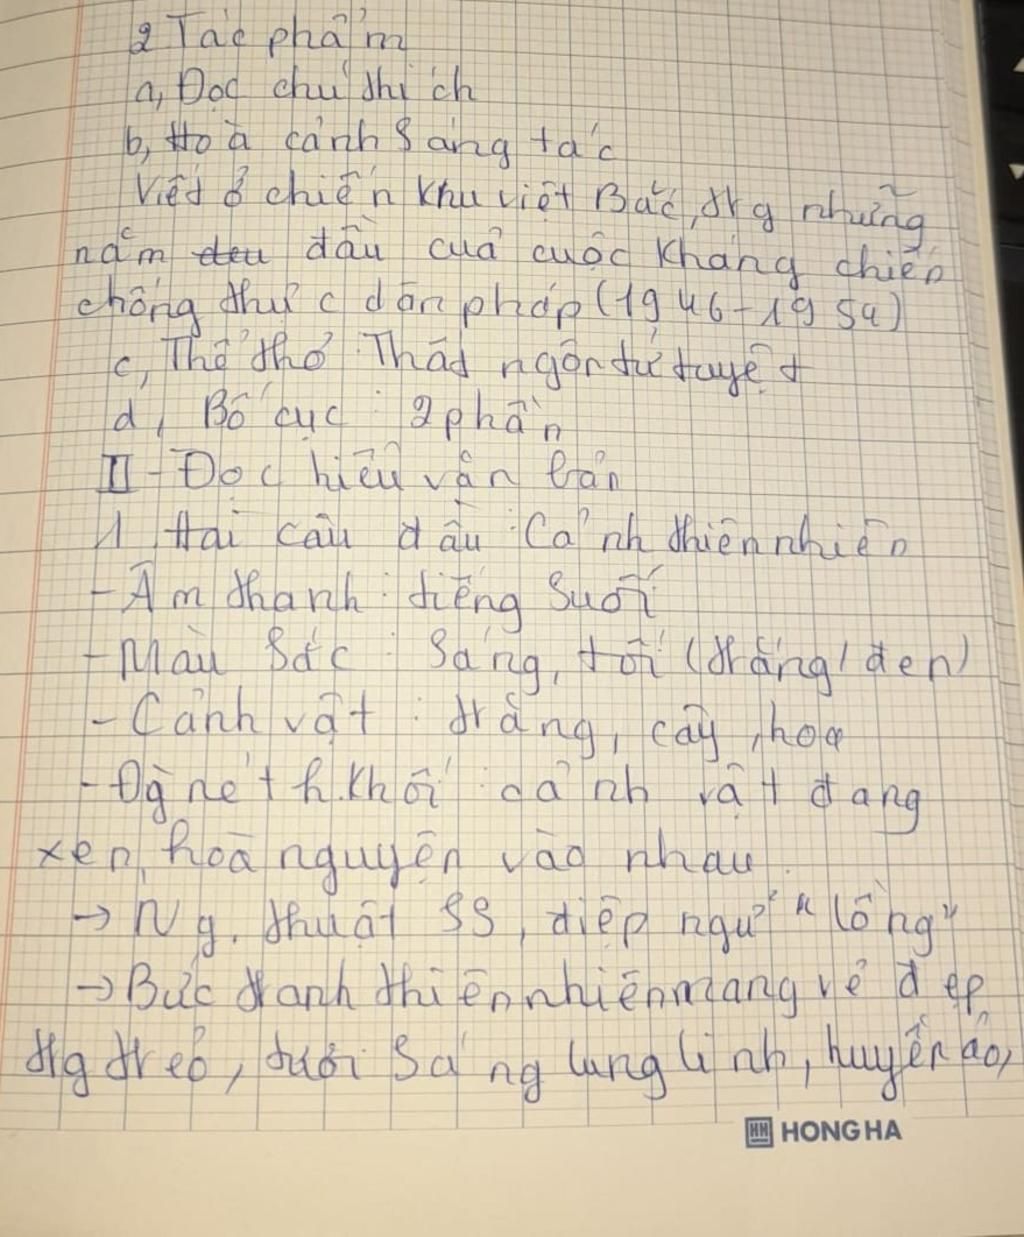 2 Tác phẩm
a, Đọc chú thích
b, Hoà cảnh sáng tác
Viết ở chiến khu việt Bắc, trg những
năm đầu của cuộc kháng chiến
chống thực dân pháp (1946-1954)
c, Thể thơ : Thất ngôn tứ tuyệt
d, Bố cục : 2 phần
II - Đọc hiểu văn bản
1, Hai câu đầu : Cảnh thiên nhiên
- Âm thanh : tiếng suối
- Màu sắc : Sáng, tối (trắng / đen)
- Cảnh vật : trăng, cây, hoa
- Đg nét h.khối : cảnh vật đang
xen, hoà nguyện vào nhau.
→ Ng. thuật SS, điệp ngữ "lồng"
→ Bức tranh thiên nhiên mang vẻ đẹp
trg trẻo, tươi sáng lung linh, huyền ảo,
HH HONG HA